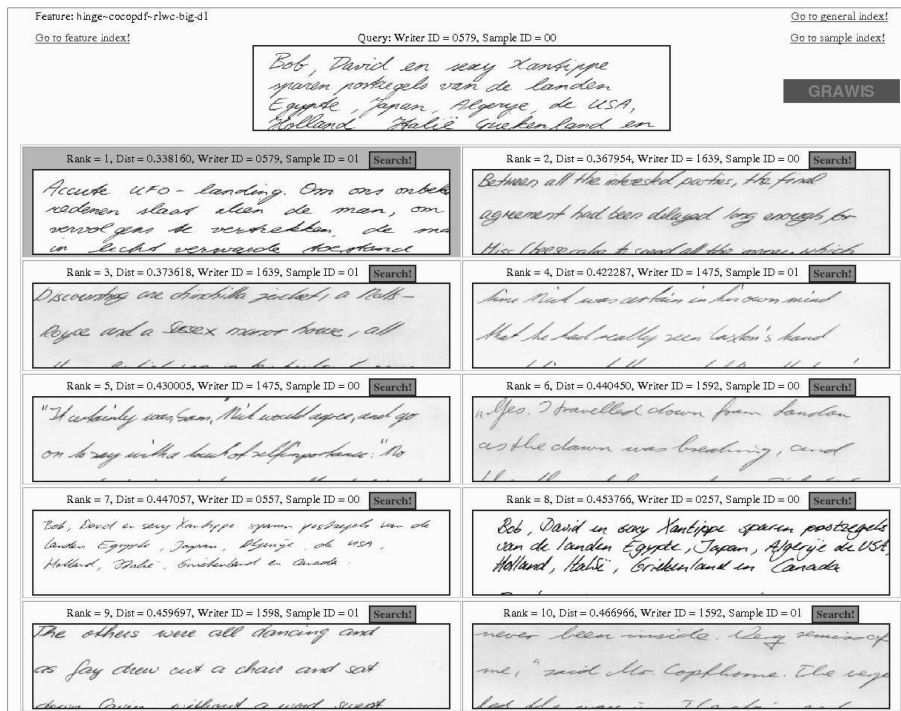 Feature: hinge~cocopdf~rlwc-big-d1
Go to general index!
Go to feature index!
Query: Writer ID = 0579, Sample ID = 00
Go to sample index!
GRAWIS
Bob, David en sexy Xantippe
sparen postzegels van de landen
Egypte, Japan, Algerije, de USA,
Holland Italië Griekenland en
Rank = 1, Dist = 0.338160, Writer ID = 0579, Sample ID = 01 Search!
Accute UFO-landing. Om ons onbeke
redenen slaat alien de man, om
vervolgens te vertrekken, de ma
in licht verwarde toestand
Rank = 2, Dist = 0.367954, Writer ID = 1639, Sample ID = 00 Search!
Between all the interested parties, the final
agreement had been delayed long enough for
Miss Cheesecake to spend all the money, which
Rank = 3, Dist = 0.373618, Writer ID = 1639, Sample ID = 01 Search!
Discounting one chinchilla jacket, a Rolls-
Royce and a Sussex manor house, all
Rank = 4, Dist = 0.422287, Writer ID = 1475, Sample ID = 01 Search!
time Nick was certain in his own mind
that he had really seen Caxton's hand
Rank = 5, Dist = 0.430005, Writer ID = 1475, Sample ID = 00 Search!
"It certainly was, Sam," Nick would agree, and go
on to say with a touch of selfimportance: "No
Rank = 6, Dist = 0.440450, Writer ID = 1592, Sample ID = 00 Search!
„Yes. I travelled down from London
as the dawn was breaking, and
Rank = 7, Dist = 0.447057, Writer ID = 0557, Sample ID = 00 Search!
Bob, David en sexy Xantippe sparen postzegels van de
landen Egypte, Japan, Algerije, de USA,
Holland, Italië, Griekenland en Canada.
Rank = 8, Dist = 0.453766, Writer ID = 0257, Sample ID = 00 Search!
Bob, David en sexy Xantippe sparen postzegels
van de landen Egypte, Japan, Algerije de USA,
Holland, Italië, Griekenland en Canada
Rank = 9, Dist = 0.459697, Writer ID = 1598, Sample ID = 01 Search!
The others were all dancing and
as Gay drew out a chair and sat
down Gavin, without a word, swept
Rank = 10, Dist = 0.466966, Writer ID = 1592, Sample ID = 01 Search!
never been inside. Very reminis of
me," said Mr. Copthorne. The verge